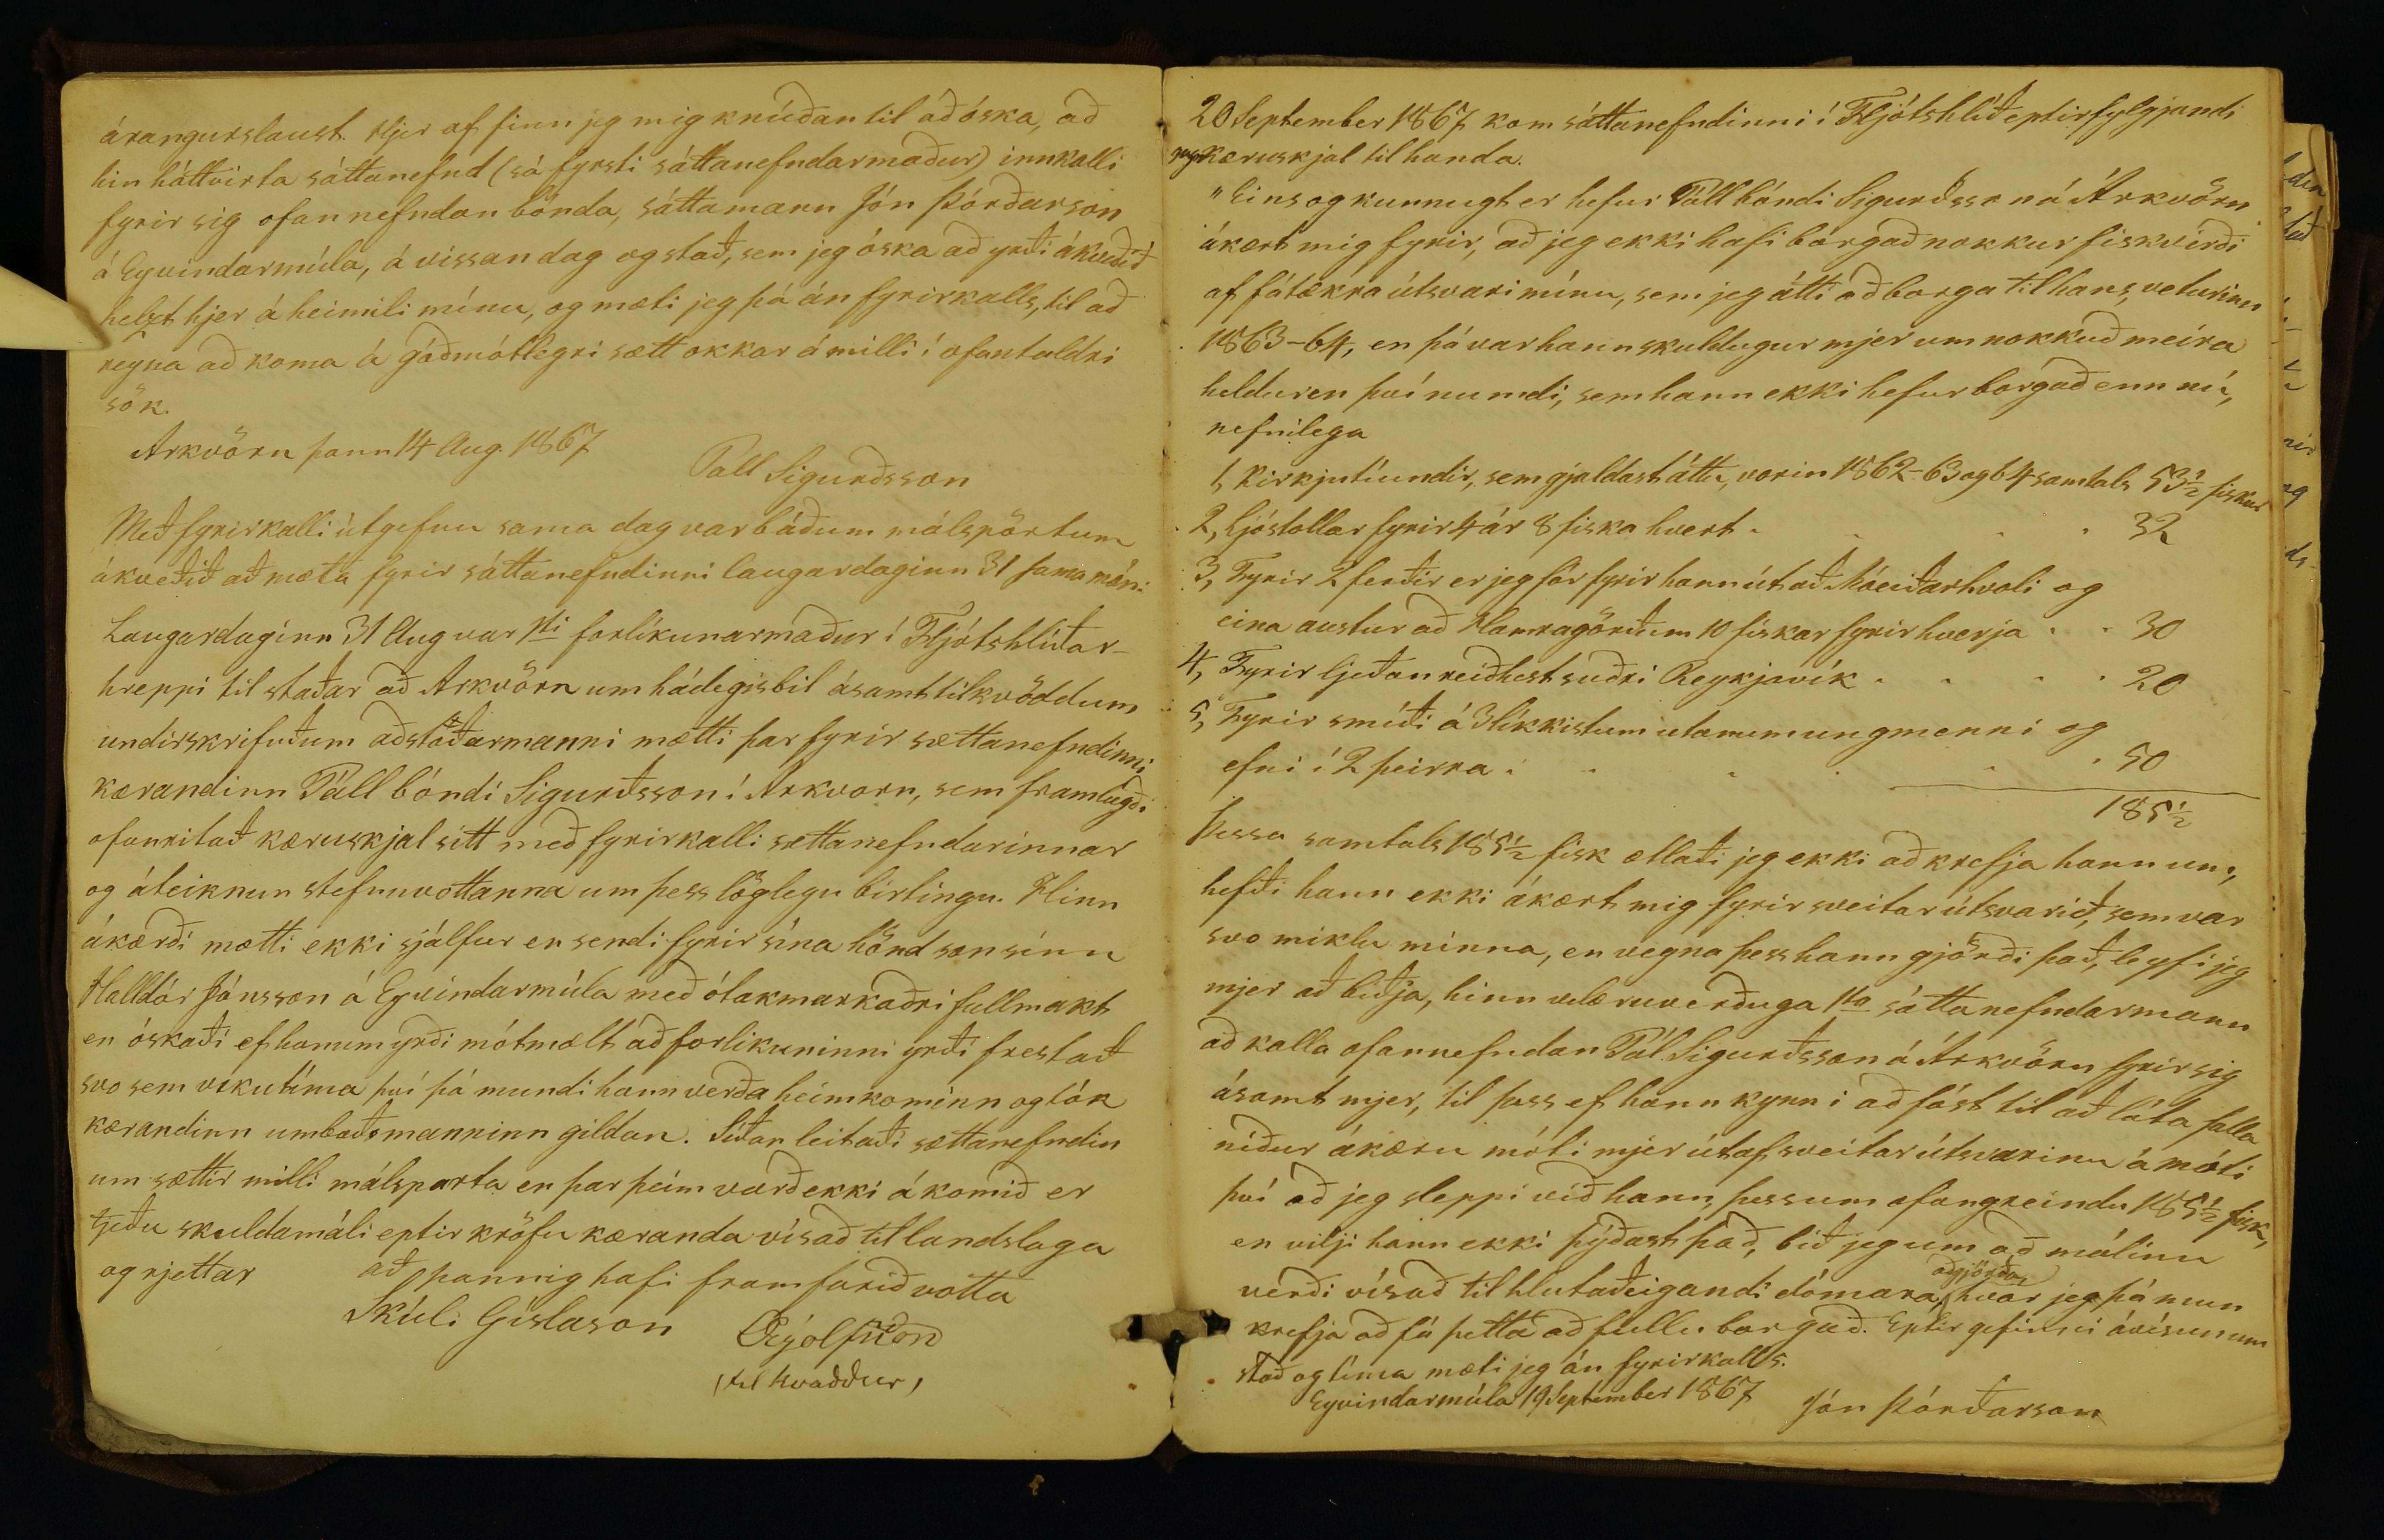 árangurslaust. Hjer af finn jeg mig knúðan til að óska, að
hin háttvirta sáttanefnd (sá fyrsti sáttanefndarmaður) innkalli
fyrir sig ofannefndan bónda, sáttamann Jón Þórðarson
á Eyvindarmúla, á vissan dag og stað, sem jeg óska að yrði ákveðið
helzt hjer á heimili mínu, og mæti jeg þá án fyrirkalls, til að
reyna að koma á góðmótlegri sætt okkar á milli í ofantaldri
sök.
Arkvörn þann 14 Aug. 1867
Páll Sigurðsson
Með fyrirkalli útgefnu sama dag var báðum málspörtum
ákveðið að mæta fyrir sáttanefndinni laugardaginn 31 sama mán:
Laugardaginn 31 Aug var 1sti forlíkunarmaður í Fljótshlíðar-
hreppi til staðar að Arkvörn um hádegisbil ásamt tilkvöddum
undirskrifuðum aðstoðarmanni mætti þar fyrir sættanefndinni
kærandinn Páll bóndi Sigurðsson í Arkvorn, sem framlagði
ofanritað kæruskjal sitt með fyrirkalli sættanefndarinnar
og áteiknun stefnuvottanna um þess löglegu birtingu. Hinn
ákærði mætti ekki sjálfur en sendi fyrir sína hönd son sinn
Halldór Jónsson á Eyvindarmúla með ótakmarkaðri fullmakt
en óskaði ef hanum yrði mótmælt að forlikuninni yrði frestað
svo sem vikutíma því þá mundi hann verða heimkominn og tók
kærandinn umboðsmanninn gildan. Síðan leitaði sættanefndin
um sættir milli málsparta en þar þeim varð ekki á komið er
tjeðu skuldamáli eptir kröfu kæranda vísað til landslaga
og rjettar að þannig hafi framfarið votta
Skúli Gíslason
(til kvaddur)
20 September 1867 kom sáttanefndinni í Fljótshlíð eptirfylgjandi
kæruskjal til handa.
"Eins og kunnugt er hefur Páll bóndi Sigurðsson á Árkvörn
ákært mig fyrir, að jeg ekki hafi borgað nokkur fiskvirði
af fátækra útsvari mínu, sem jeg átti að borga til hans, veturinn
1863-64, en þá var hann skuldugur mjer um nokkuð meira
heldur en því numdi, sem hann ekki hefur borgað enn nú,
nefnilega
1, Kirkjutíundir, sem gjaldast áttu, vorin 1862-63 og 64 samtals 53½ fiskur
2, Ljóstollar fyrir 4 ár 8 fiska hvert . . . . 32
3, Fyrir 2 ferðir er jeg fór fyrir hann út að Móeiðarhvoli og
eina austur að Hamragörðum 10 fiskar fyrir hverja . . 30
4, Fyrir ljeðan reiðhest suðri Reykjavík . . . . 20
5, Fyrir smíði á 3 líkkistum utanum ungmenni og
efni í 2 þeirra . . . . . 50
185½
Þessa samtals 185½ fisk ætlaði jeg ekki að krefja hann um,
hefði hann ekki ákært mig fyrir sveitar útsvarið, sem var
svo miklu minna, en vegna þess hann gjörði það, leyfi jeg
mjer að biðja, hinn velæruverðuga 1sta sáttanefndarmann
að kalla ofannefndan Pál Sigurðsson á Árkvörn fyrir sig
ásamt mjer, til þess ef hann kynni að fást til að láta falla
niður ákæru móti mjer útaf sveitar útsvarinu á móti
því að jeg sleppi við hann, þessum ofangreindu 185½ fisk,
en vilji hann ekki þýðast það, bið jeg um að málinu
verði vísað til hlutaðeigandi dómara aðgjörða, hvar jeg þá mun
krefja að fá þetta að fullu borgað. Eptir gefinni ávísun um
stað og tíma mæti jeg án fyrirkalls.
Eyvindarmúla 19 September 1867 Jón Þórðarson